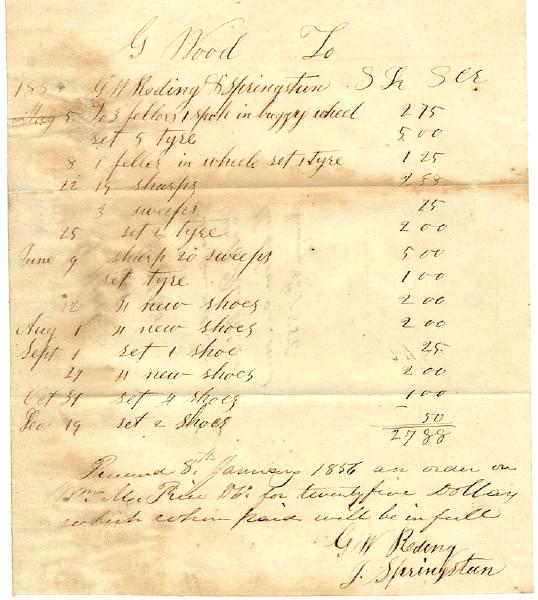 G Wood To
1855 G W Reding & Springstun S Dr S Cr
May 5 To 3 fellers 1 spok in buggy wheel 2 75
set 5 tyre 5 00
8 1 feller in wheele set 1 tyre 1 25
12 19 sharps 2 38
3 sweeps 75
25 set 2 tyre 2 00
June 9 sharp 20 sweeps 5 00
set tyre 1 00
12 4 new shoes 2 00
Aug 1 4 new shoes 2 00
Sept 1 set 1 shoe 25
24 4 new shoes 2 00
Oct 31 set 4 shoes 1 00
Dec 19 set 2 shoes 50
27 88
Received 8th January 1856 an order on
Wm Mc Rice for twentyfive Dollars
which when paid will be in full
G W Reding
J. Springstun